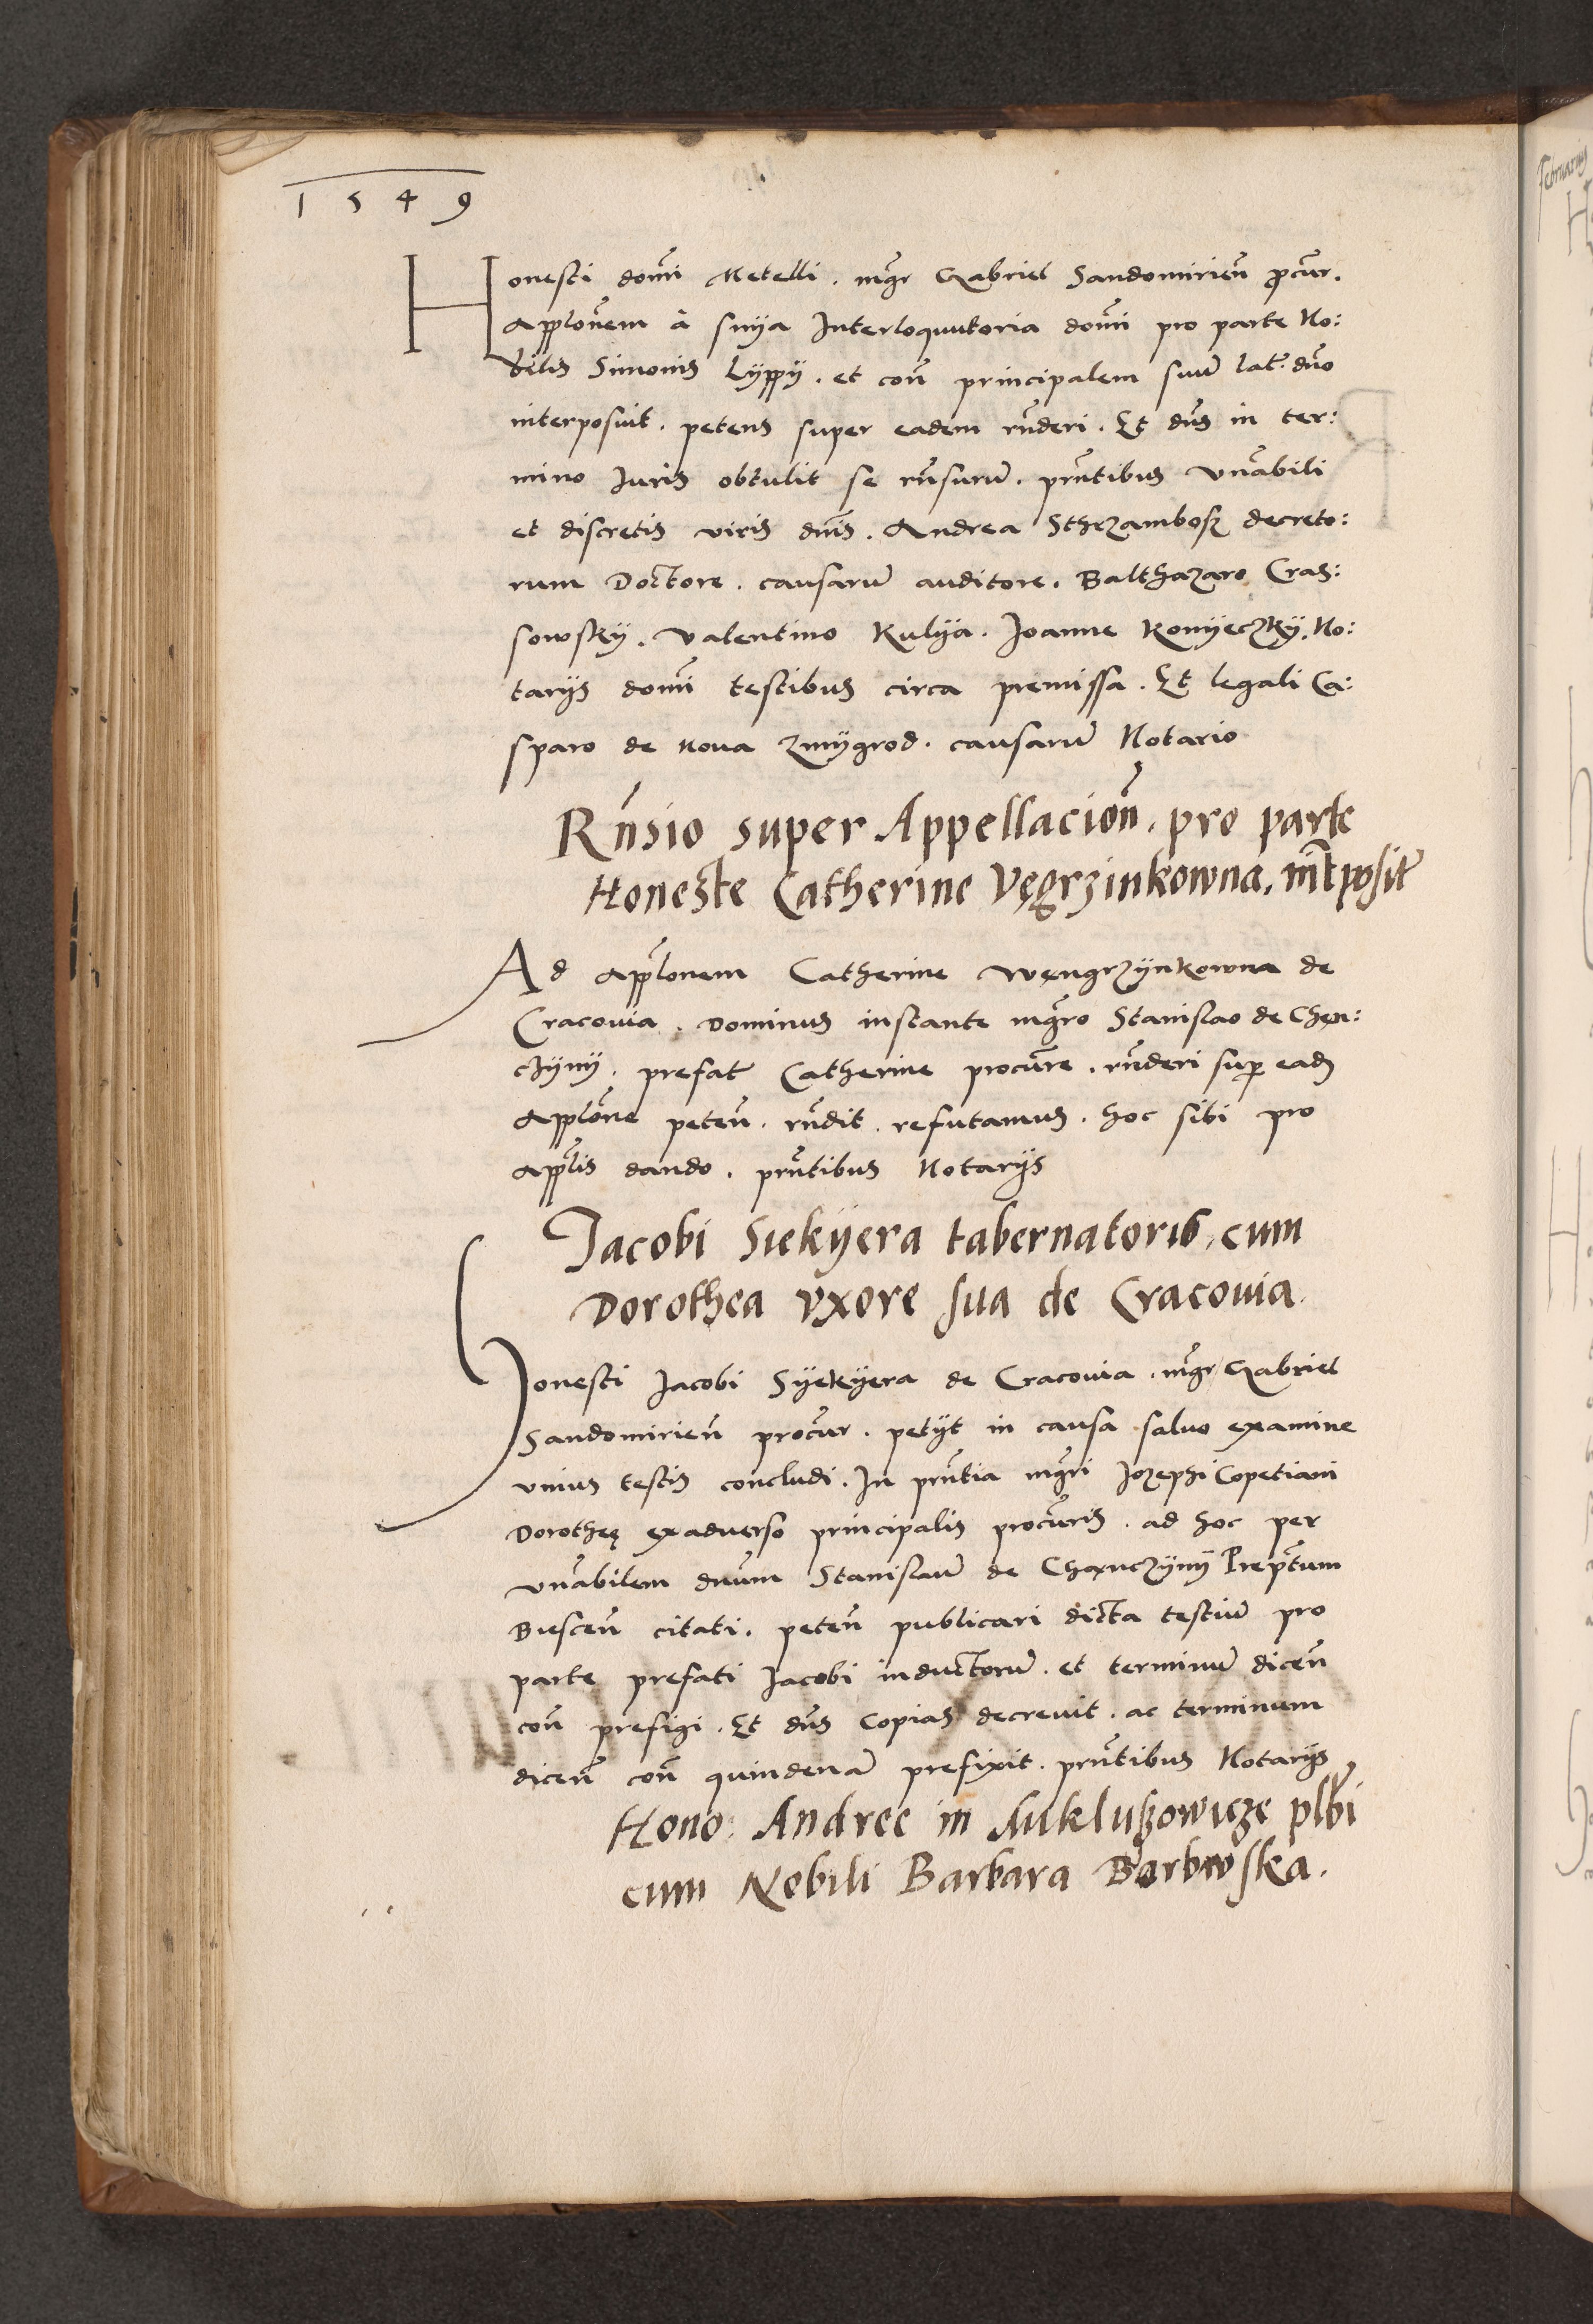 1 5 4 9
Honesti domi Metelli. mgr Gabriel Sandomirien procur.
Applonem à snya Interloquutoria domi pro parte No:
bilis Simonis Lyppy. et con principalem suum lat. duo
interposuit. petens super eadem rnderi. Et dns in ter:
mino Juris obtulit se rnsurum. prntibus vnabili
et discretis viris dnis. Andrea Sthrzambosz decreto:
rum Doctore. causarum auditore. Balthazaro Cras:
sowsky. Valentino Kulya. Joanne Konyeczky. No:
tarys domi testibus circa premissa. Et legali Ca:
sparo de Noua Zmygrod. causarum Notario
Rnsio super Appellacion. pro parte
Honeste Catherine Vęgrzinkowna. intposit
Ad applonem Catherine Węngrzynkowna de
Cracouia. Dominus instante mgro Stanislao de Chęn:
czyny. prefat Catherine procure. rnderi sup ead
applone peten. rndit. refutamus. hoc sibi pro
applis dando. prntibus Notarys
Jacobi Siekyera tabernatoris, cum
Dorothea vxore sua de Cracouia.
Honesti Jacobi Syekyera de Cracouia. mgr Gabriel
Sandomirien procur. petyt in causa saluo examine
vnius testis concludi. In prntia mgri Jozephi Copetiani
Dorotheę exaduerso principalis procuris. ad hoc per
vnabilem dnum Stanislaum de Chęnczyny Preptum
Biescen citati. peten publicari dicta testium pro
parte prefati Jacobi inductorum. et terminum dicen
con prefigi. Et dns Copias decreuit. ac terminum
dicen con quindenam prefixit. prntibus Notarys
Hono. Andree in Mikluszowicze plbi
cum Nobili Barbara Barbowska.
Februarius